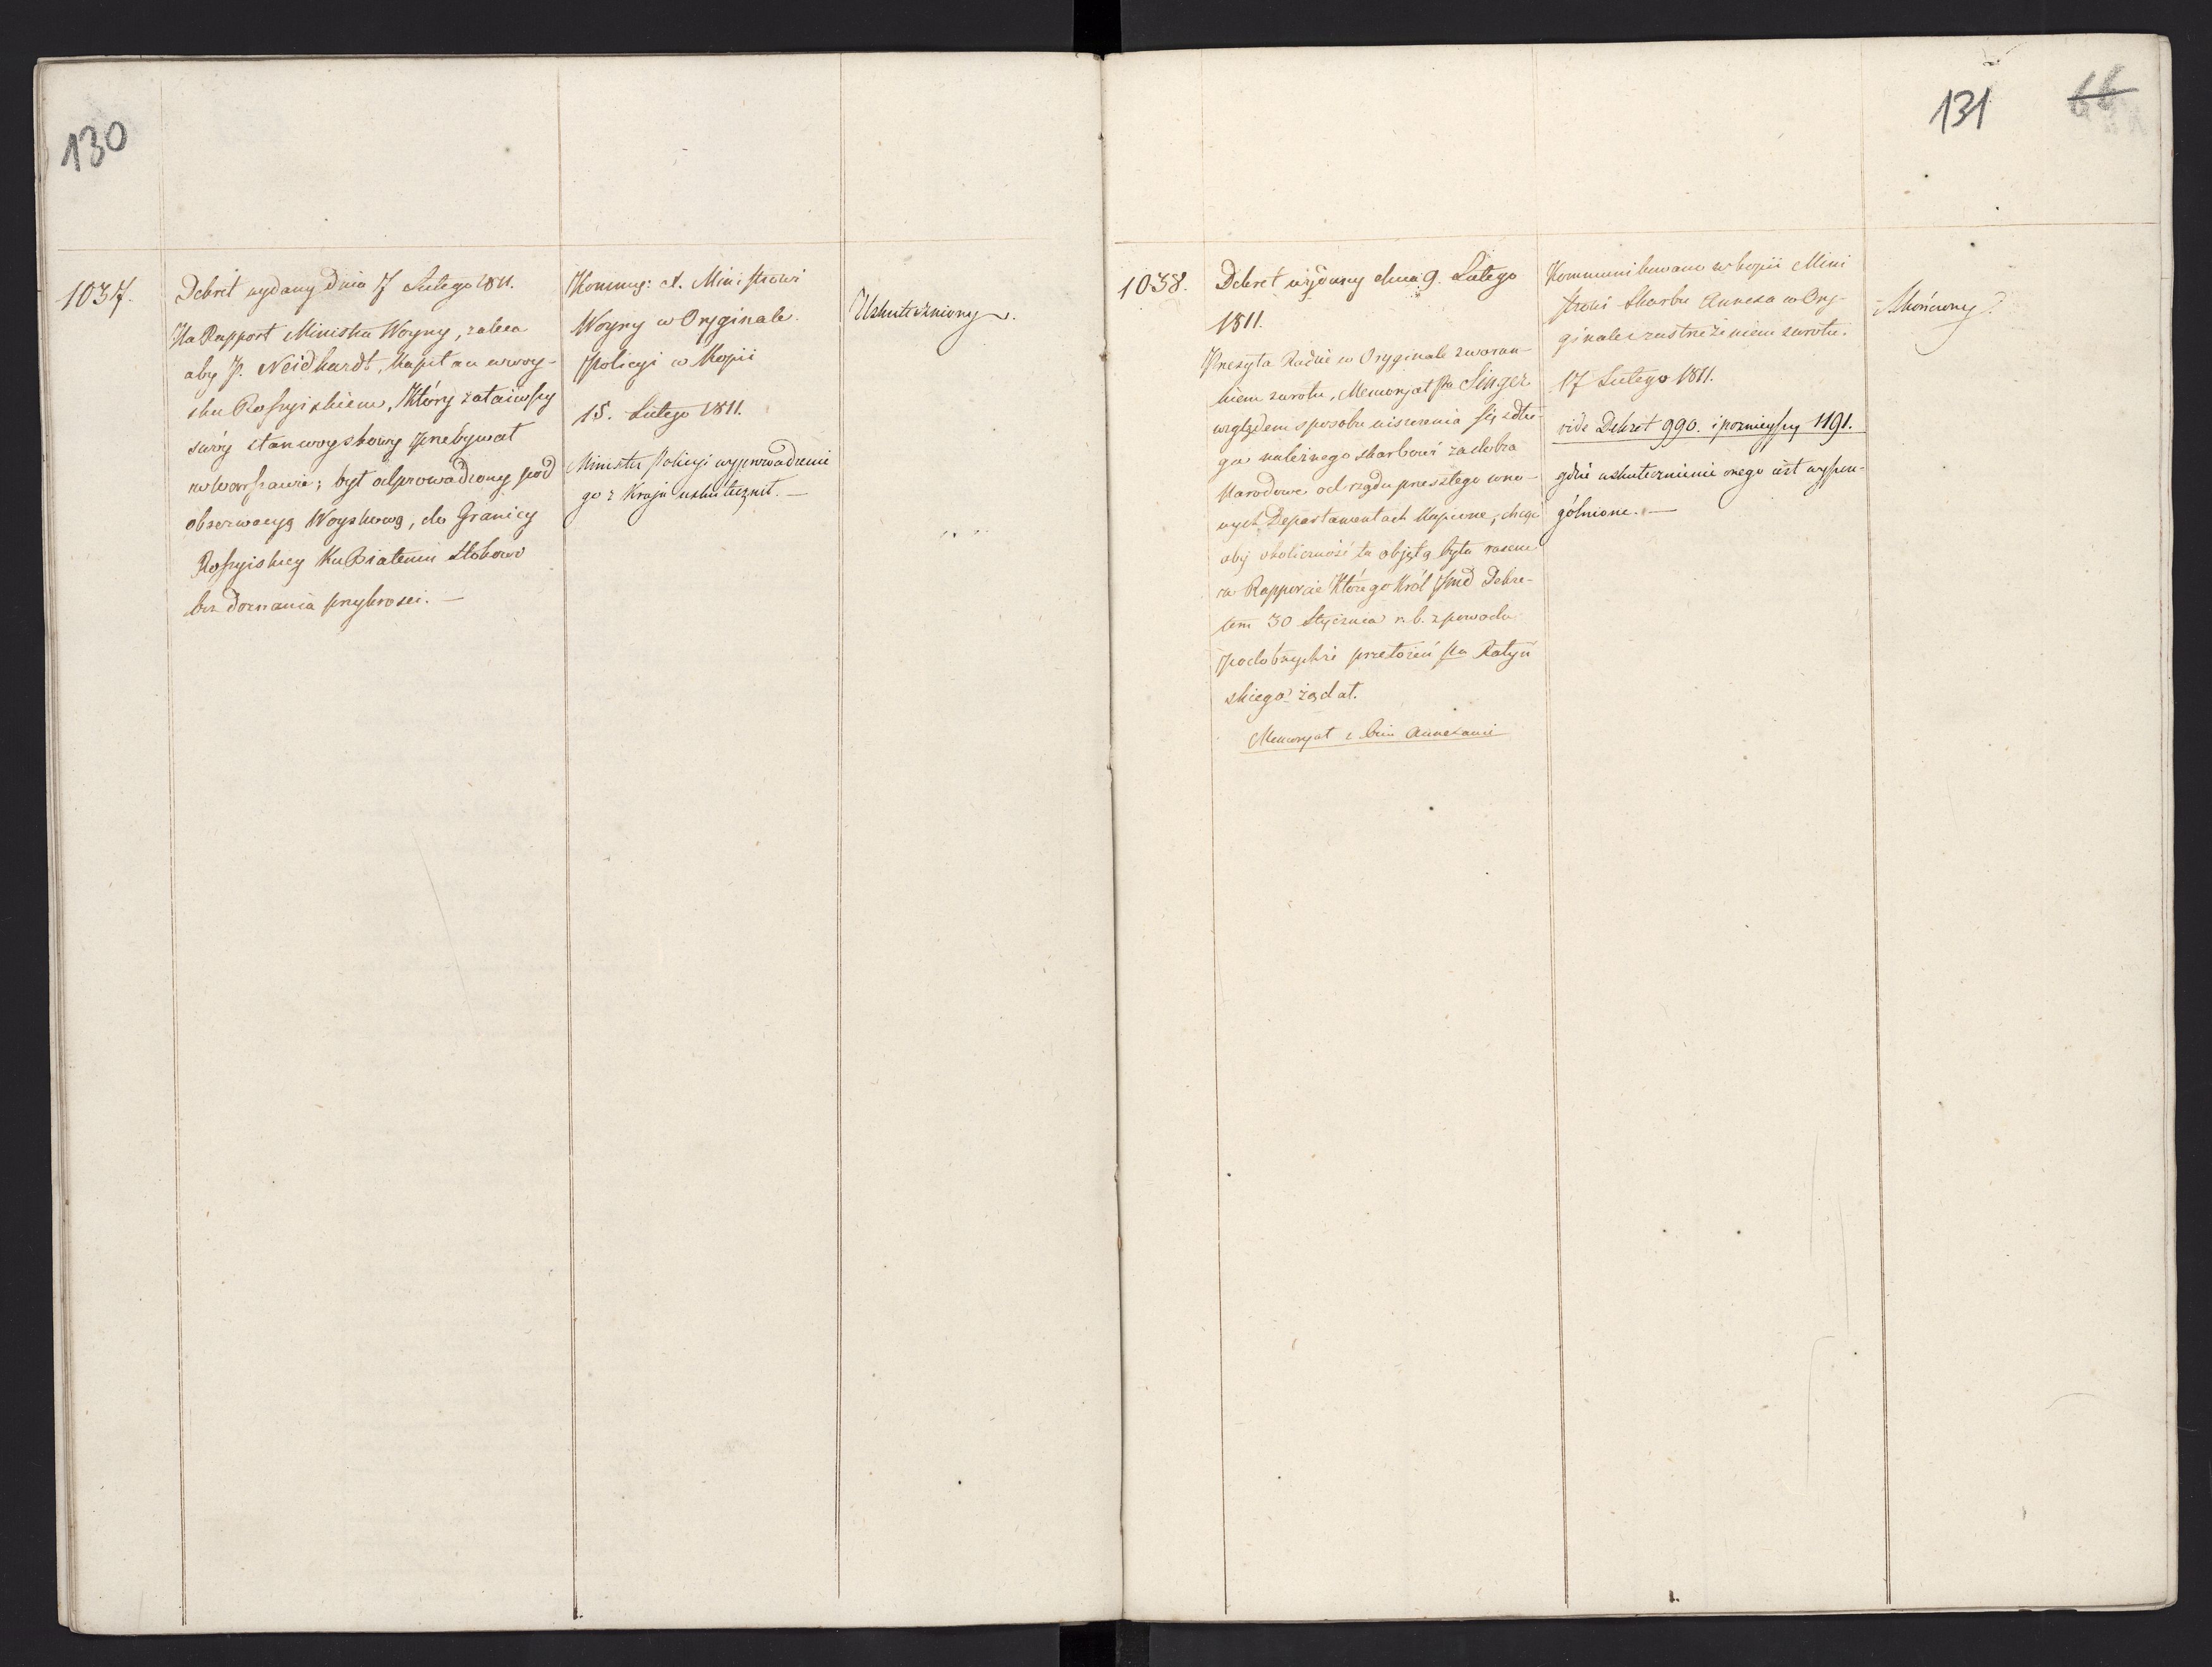 130
1037.
Dekret wydany Dnia 7 Lutego 1811.
Na Rapport Ministra Woyny, zaleca
aby P. Neidhardt, Kapitan w woy-
sku Rossyiskiem, Który zataiwszy
swóy stan woyskowy przebywał
w Warszawie; był odprowadzony pod
obserwacyą Woyskową, do Granicy
Rossyiskiey Ku Białemu Stokowi
bez doznania przykrosci. —
Kommu: A. Ministrowi
Woyny w Oryginale.
Policyi w Kopii
15. Lutego 1811.
Minister Policyi wyprowadzenie
go z Kraju uskutecznił. —
Uskuteczniony.
131
66
1038.
Dekret wydany dnia 9. Lutego
1811.
Przesyła Radzie w Oryginale z waron-
kiem zwrotu, Memoryał Pa Singer
względem sposobu uiszczenia się z dłu-
gu należnego skarbowi za dobra
Narodowe od rządu przeszłego w no-
wych Departamentach Kupione, chcąc
aby okoliczność ta objętą była razem
w Rapporcie Którego Król Pmd Dekre-
tem 30 Stycznia r. b. z powodu
podobnychże przełożeń Pa Ratyń
skiego żądał.
Memoryał z Annexami
Kommunikowano w kopii Mini
strowi Skarbu Annexa w Ory-
ginale z zastrzeżeniem zwrotu.
17 Lutego 1811.
vide Dekret 990. i poznieyszy 1191.
gdzie uskutecznienie onego iest wyszcze-
gólnione. —
Skończony